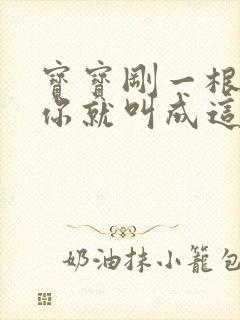 寶寶剛一根
你就叫成這
奶油抹小籠包